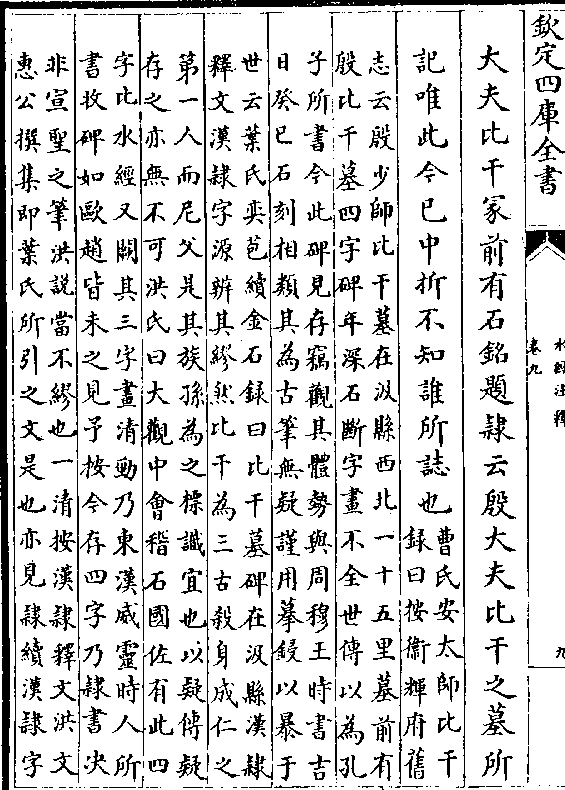 欽定四庫全書
水經注釋
卷九
九
大夫比干冢前有石銘題隷云殷大夫比干之墓所
記唯此今已中折不知誰所誌也
曹氏安太師比干
録曰按衞輝府舊
志云殷少師比干墓在汲縣西北一十五里墓前有
殷比干墓四字碑年深石斷字畫不全世傳以為孔
子所書今此碑見存竊觀其體勢與周穆王時書吉
日癸巳石刻相類其為古筆無疑謹用摹鋟以暴于
世云葉氏奕苞續金石録曰比干墓碑在汲縣漢隷
釋文漢隷字源辨其繆然比干為三古殺身成仁之
第一人而尼父是其族孫為之標識宜也以疑傳疑
存之亦無不可洪氏曰大觀中會稽石國佐有此四
字比水經又闕其三字畫清勁乃東漢威靈時人所
書攷碑如歐趙皆未之見予按今存四字乃隷書决
非宣聖之筆洪說當不繆也一清按漢隷釋文洪文
惠公撰集即葉氏所引之文是也亦見隷續漢隷字